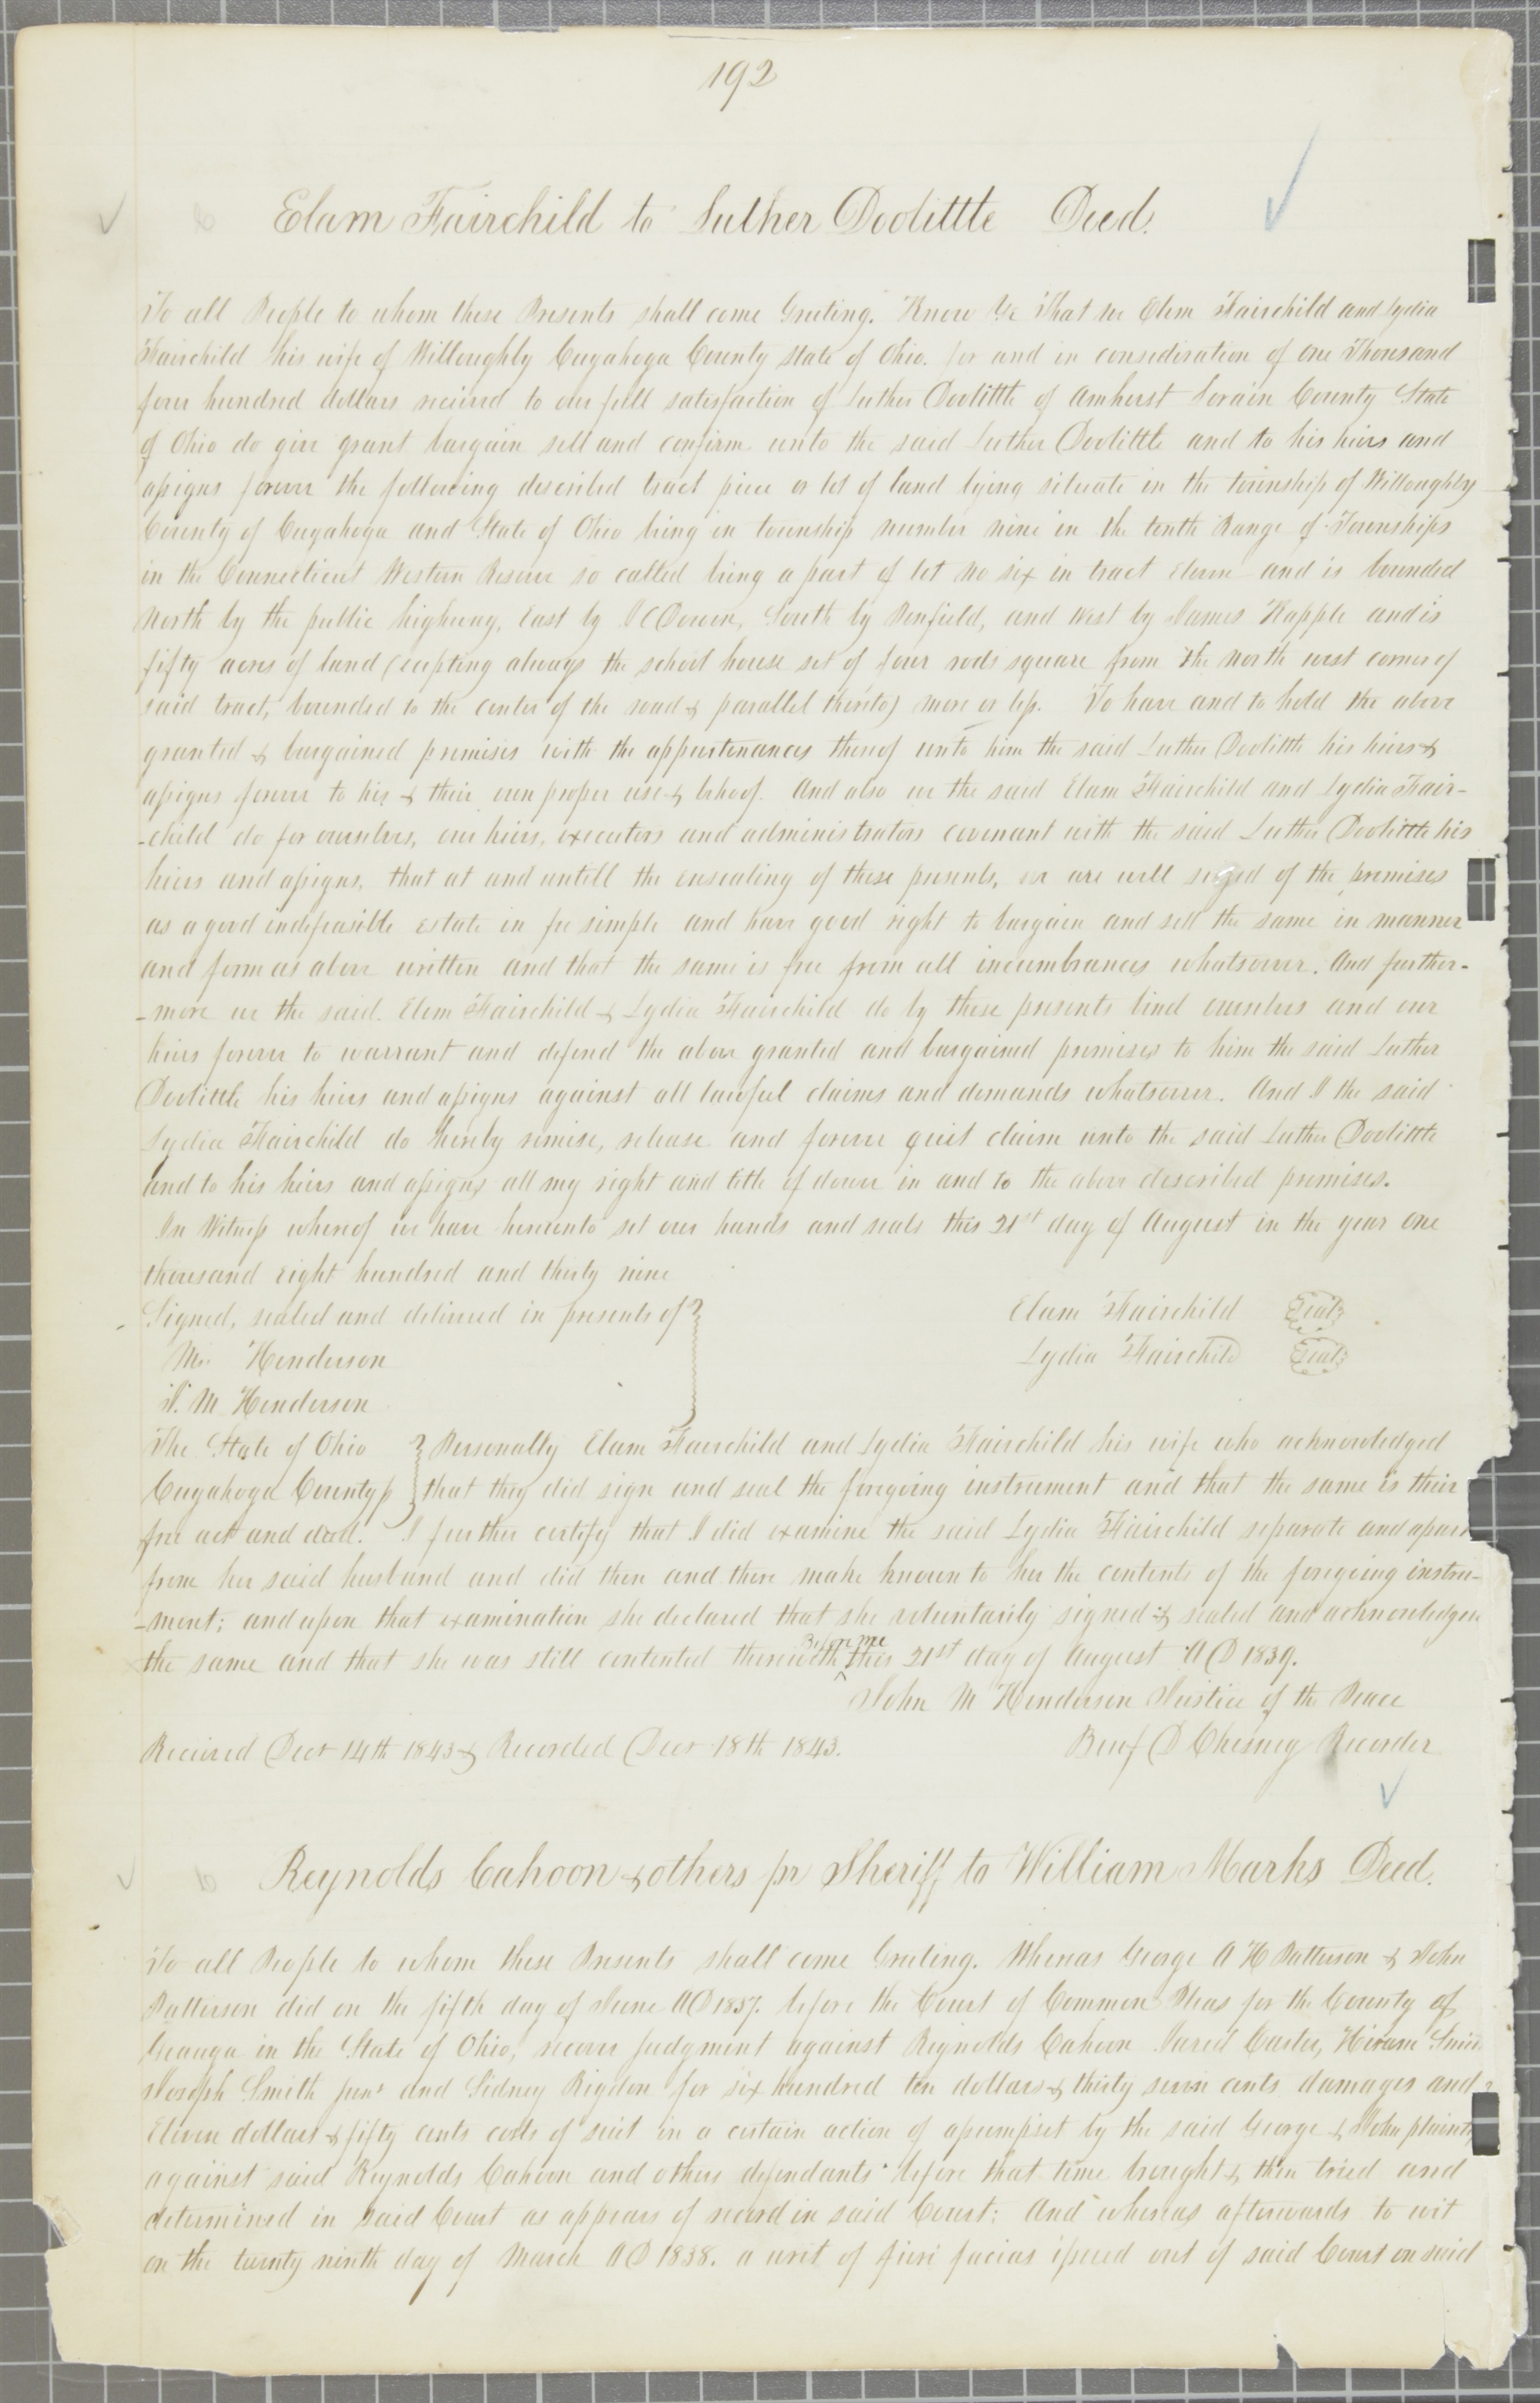 192
Elam Fairchild to Luther Doolittle Deed.
To all People to whom these Presents shall come Greeting. Know Ye That we Elam Fairchild and Lydia
Fairchild his wife of Willoughby Cuyahoga County State of Ohio. for and in consideration of one Thousand
four hundred dollars recieved to our full satisfaction of Luther Doolittle of Amherst Lorain County State
of Ohio do give grant bargain sell and confirm unto the said Luther Doolittle and to his heirs and
assigns forever the following described tract piece or lot of land lying situate in the township of Willoughby
County of Cuyahoga and State of Ohio being in township number nine in the tenth Range of Townships
in the Connecticut Western Reserve so called being a part of lot No six in tract Eleven and is bounded
North by the public highway, East by Downn, South by Penfield, and West by James Happle and is
fifty acres of land (excepting always the school house set of four rods square from the North west corner of
said tract, bounded to the center of the road & parallel thereto) more or less. To have and to hold the above
granted & bargained premises with the appurtenances thereof unto him the said Luther Doolittle his heirs &
assigns forever to his & their own proper use & behoof. And also we the said Elam Fairchild and Lydia Fair-
-child do for ourselves, our heirs, executors and administrators covenant with the said Luther Doolittle his
heirs and assigns, that at and untill the ensealing of these presents, we are well seized of the premises
as a good indefeasible estate in fee simple and have good right to bargain and sell the same in manner
and form as above written and that the same is free from all incumbrances whatsoever. And further-
-more we the said Elam Fairchild & Lydia Fairchild do by these presents bind ourselves and our
heirs forever to warrant and defend the above granted and bargained premises to him the said Luther
Doolittle his heirs and assigns against all lawful claims and demands whatsoever. And I the said
Lydia Fairchild do hereby remise, release and forever quit claim unto the said Luther Doolittle
and to his heirs and assigns all my right and title of dower in and to the above described premises.
In Witness whereof we have hereunto set our hands and seals this 21st day of August in the year one
thousand eight hundred and thirty nine
Signed, sealed and delivered in presents of
Elam Fairchild Seal
Henderson
Lydia Fairchild Seal
M Henderson
The State of Ohio Personally Elam Fairchild and Lydia Fairchild his wife who acknowledged
Cuyahoga County ss that they did sign and seal the foregoing instrument and that the same is their
free act and deed. I further certify that I did examine the said Lydia Fairchild separate and apart
from her said husband and did then and there make known to her the contents of the foregoing instru-
-ment; and upon that examination she declared that she voluntarily signed & sealed and acknowledged
the same and that she was still contented therewith Before me this 21st day of August A D 1839.
John M Henderson Justice of the Peace
Recieved Decr 14th 1843 & Recorded Decr 18th 1843.
Benj D Chesney Recorder
Reynolds Cahoon & others pr Sheriff to William Marks Deed.
To all People to whom these Presents shall come Greeting. Whereas George A H Patterson & John
Patterson did on the fifth day of June A D 1837. before the Court of Common Pleas for the County of
Geauga in the State of Ohio, recover judgment against Reynolds Cahoon Jared Carter, Hiram Smi
Joseph Smith junr and Sidney Rigdon for six hundred ten dollars & thirty seven cents damages and
Eleven dollars & fifty cents costs of suit in a certain action of assumpsit by the said George & John plaint
against said Reynolds Cahoon and others defendants before that time brought & then tried and
determined in said Court as appears of record in said Court: And whereas afterwards to wit
on the twenty ninth day of March A D 1838. a writ of fieri facias issued out of said Court on said